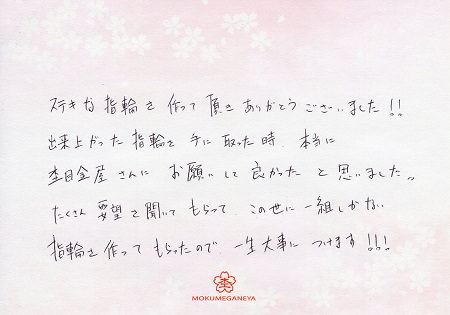 ステキな指輪を作って頂きありがとうございました!!
出来上がった指輪を手に取った時、本当に
杢目金屋さんにお願いして良かったと思いました。
たくさん要望を聞いてもらって、この世に一組しかない
指輪を作ってもらったので、一生大事につけます!!!
杢
MOKUMEGANEYA